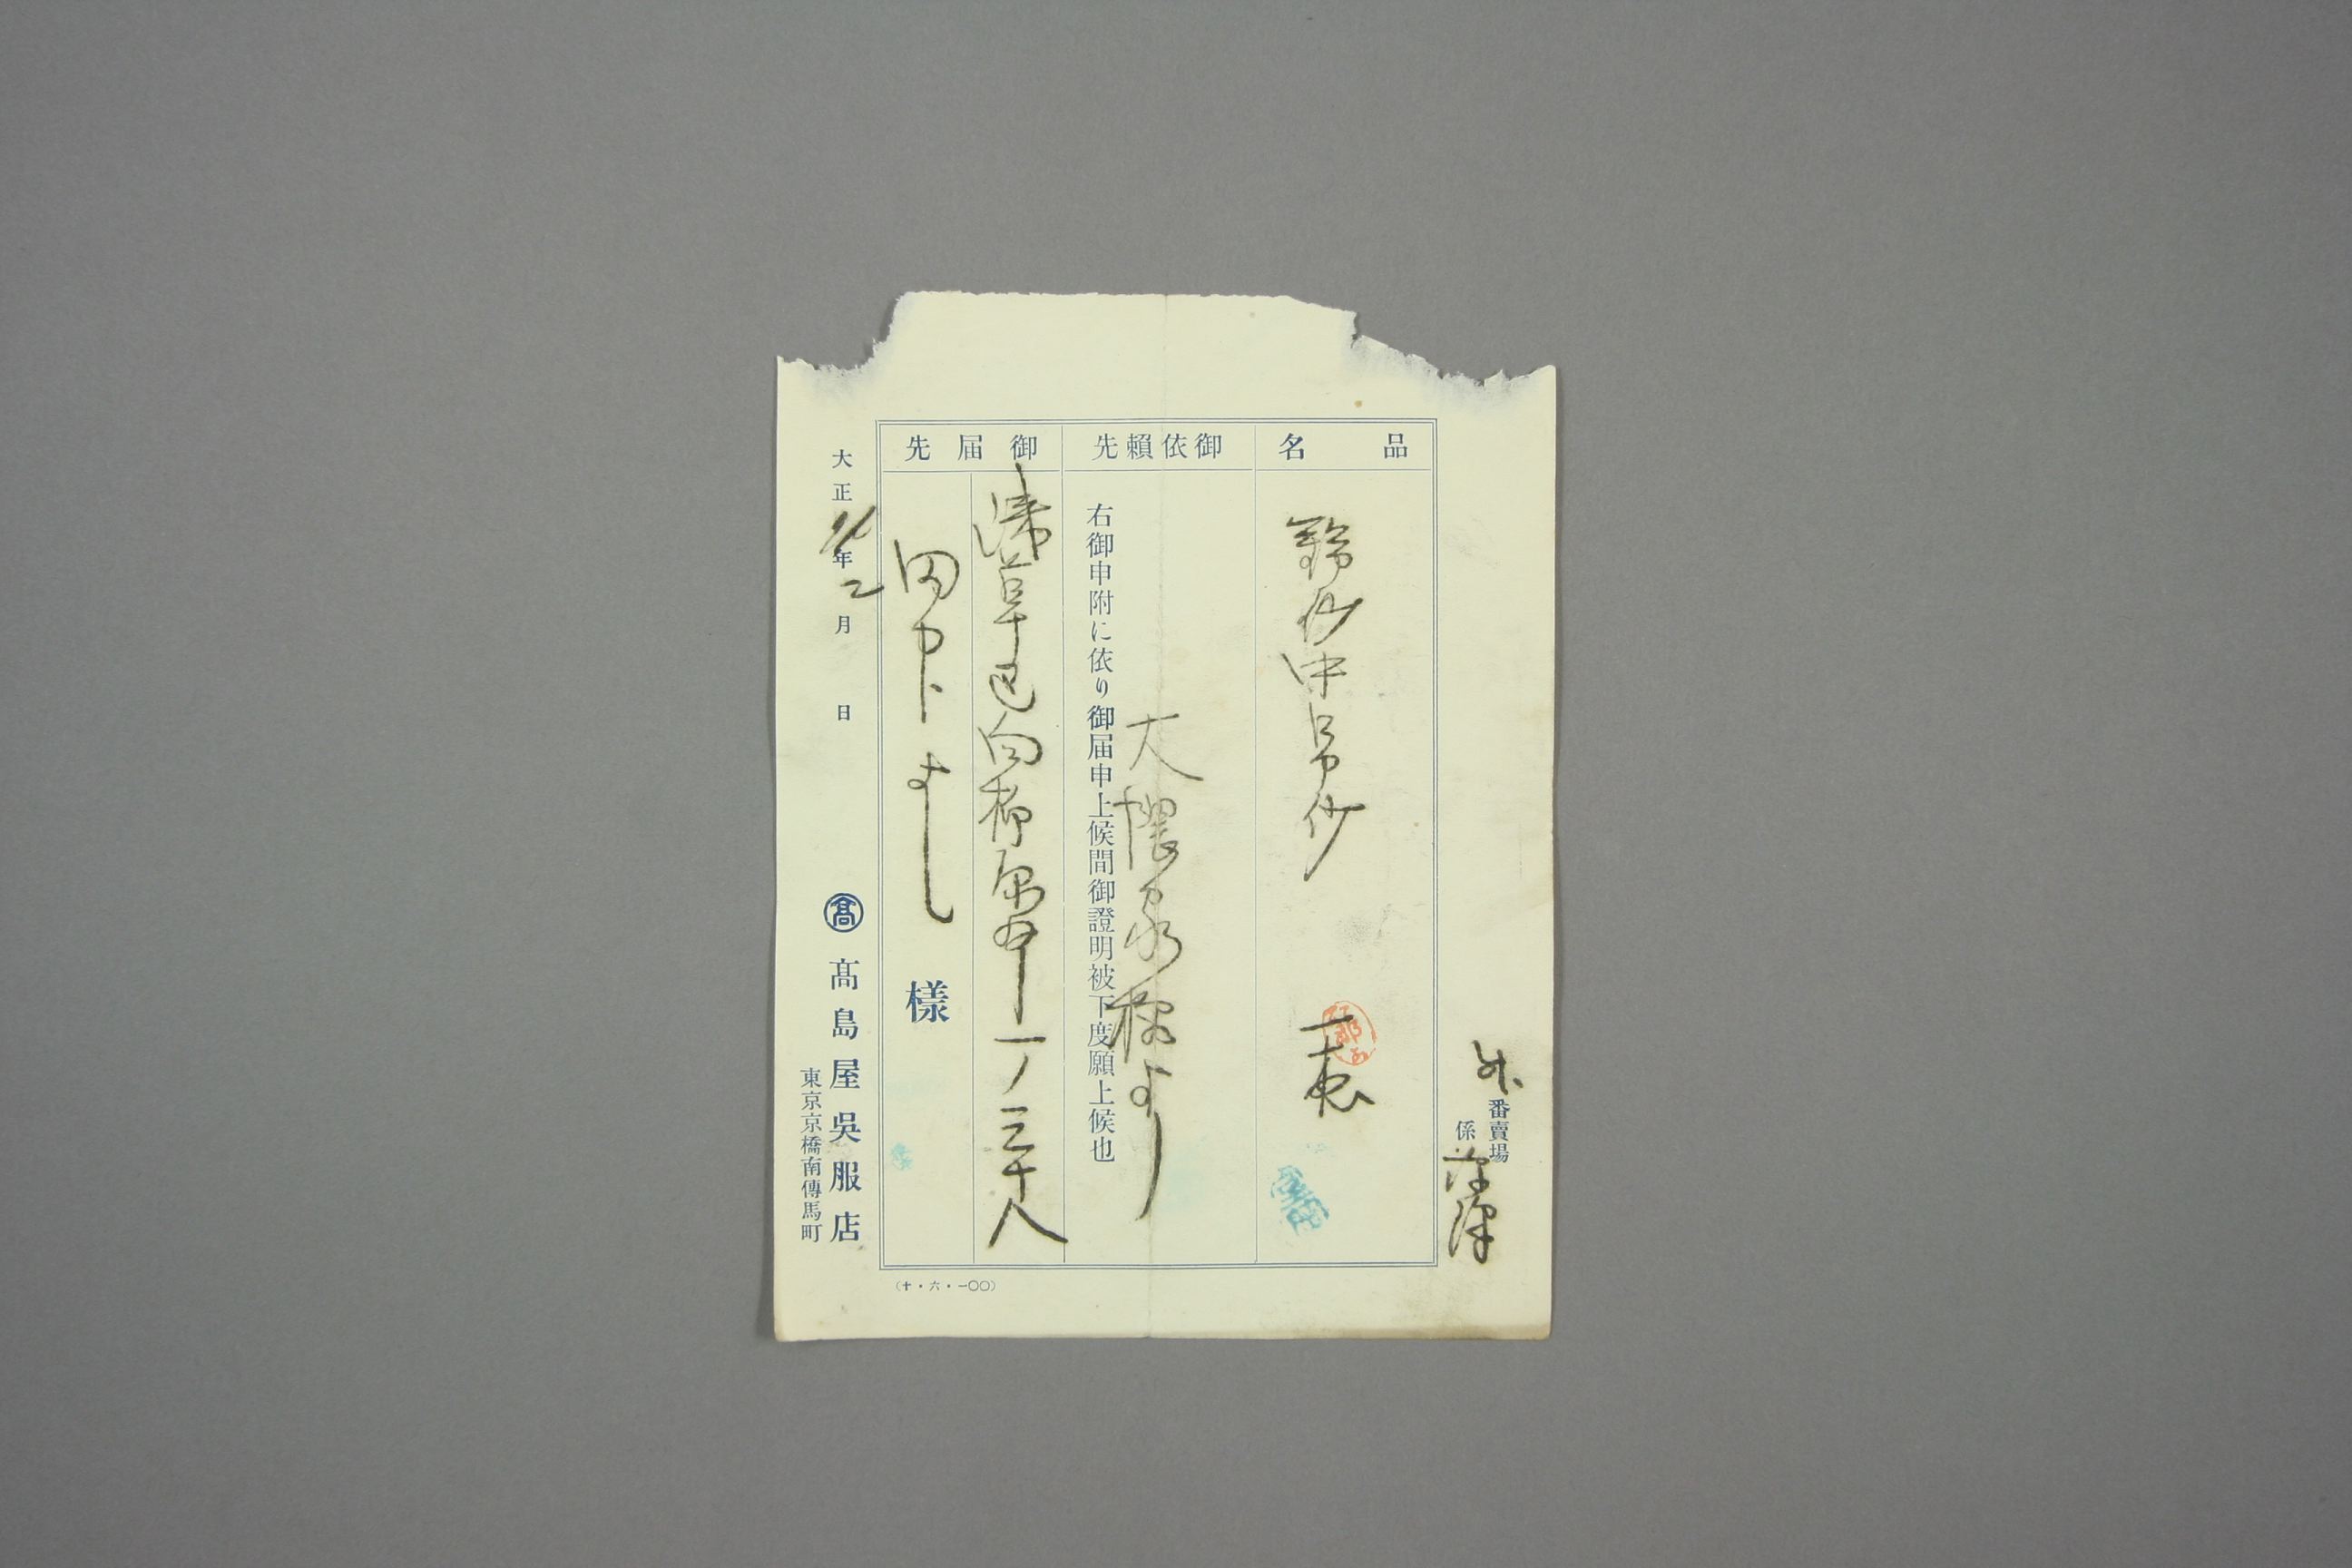 外番賣場
係
品名
中帛紗
御依賴先
大隈家様より
右御申附に依り御届申上候間御證明被下度願上候也
御届先
浅草區向柳原町一ノ三十八
田中よし
様
大正11年2月 日
髙
髙島屋吳服店
東京京橋南傳馬町
(十・六・一〇〇)